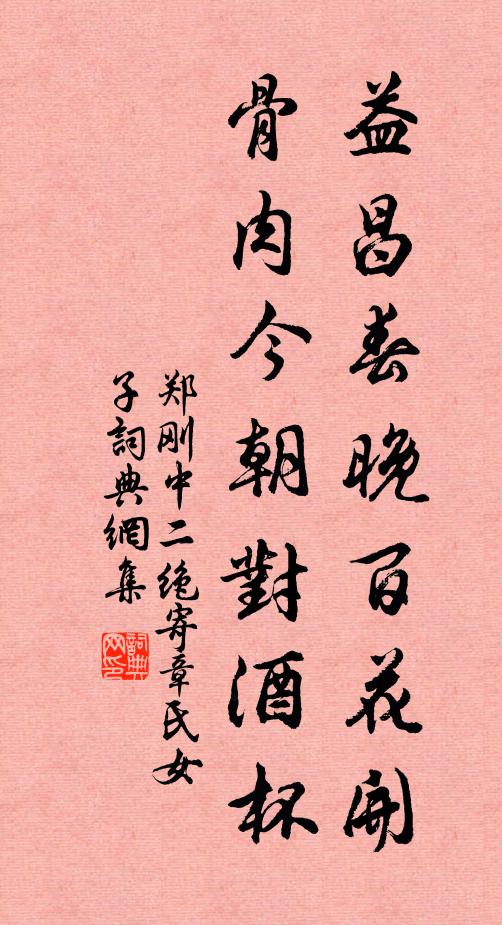 益昌春晚百花開
骨肉今朝對酒杯
郑刚中二绝寄章氏女
子詞典網集
詞典網印